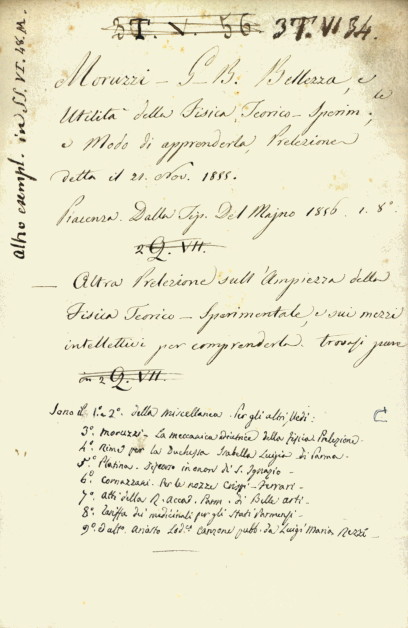 3T. V. 56. 3T. VI 34.
altro esempl. in SS. VI. 48. M.
Moruzzi - G. B. Bellezza, e
Utilità della Fisica Teorico-Sperim.le
e Modo di apprenderla, Prelezione
detta il 21. Nov. 1855.
Piacenza. Dalla Tip. Del Majno 1856. 1. 8°.
2 Q. VII.
Altra Prelezione sull'Ampiezza della
Fisica Teorico-Sperimentale, e sui mezzi
intellettivi per comprenderla. trovasi pure
in 2 Q. VII.
Sono il 1.° e 2.° della miscellanea. Per gli altri, Vedi:
3.° Moruzzi. La meccanica della Fisica Prelezione.
4.° Rime per la Duchessa Isabella Luigia di Parma.
5.° Platina. Discorso in onor di S. Ignazio -
6.° Cornazzani. Per le nozze Crispi - Ferrari -
7.° Atti della R. Accad. Parm. di Belle Arti -
8.° Tariffa dei medicinali per gli Stati Parmensi -
9.° Ariosto Lod.co Canzone pubb. da Luigi Maria Rezzi -